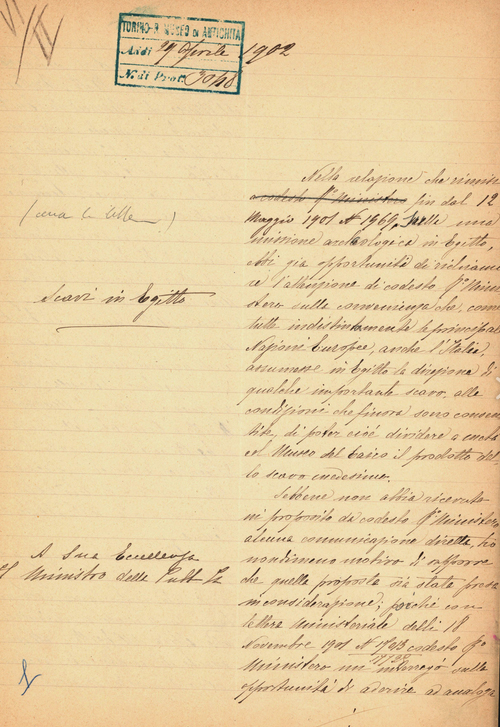 TORINO-R. MUSEO DI ANTICHITÀ
Addì 29 Aprile 1902
N. di Prot.
Scavi in Egitto
A Sua Eccellenza
il Ministro della Pubb. Iza
Nella relazione che rimisi
a codesto R° Ministero fin dal 12
Maggio 1901 N 1969, sulla una
missione archeologica in Egitto,
ebbi già opportunità di richiama
re l'attenzione di codesto R° Mini
stero sulla convenienza che, come
tutte indistintamente le principali
Nazioni Europee, anche l'Italia,
assumesse in Egitto la direzione di
qualche importante scavo, alle
condizioni che finora sono consen
tite, di poter cioè dividere a metà
col Museo del Cairo il prodotto del
lo scavo medesimo.
Sebbene non abbia ricevuto
in proposito da codesto R° Ministero
alcuna comunicazione diretta, ho
nondimeno motivo di supporre
che quella proposta sia stata presa
in considerazione; poichè con
lettera Ministeriale delli 18
Novembre 1901 N codesto R°
Ministero mi interrogò sulla
opportunità di aderire ad analoga